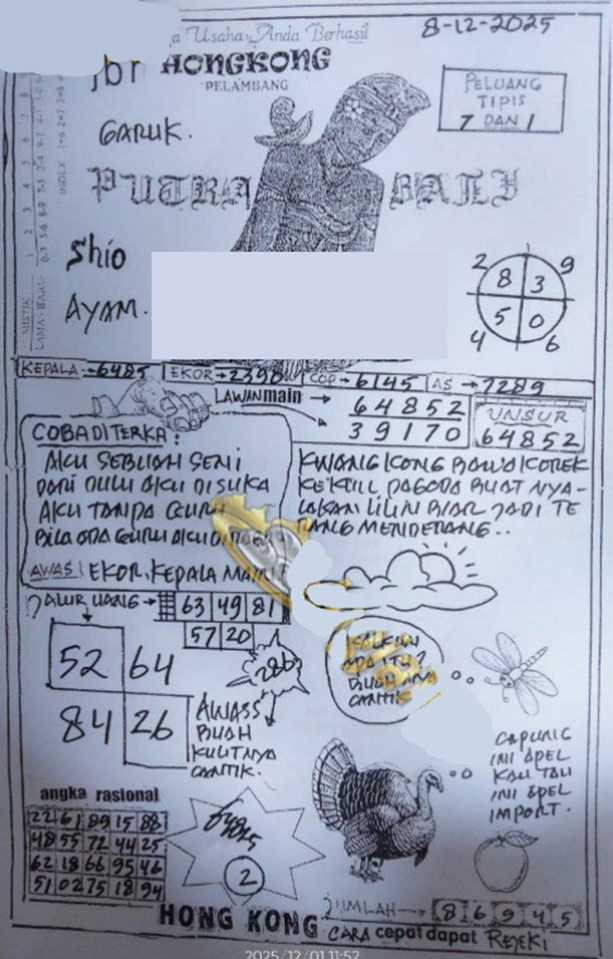 Usaha Anda Berhasil
8-12-2025
HONGKONG
PELAMBANG
PELUANG
TIPIS
7 DAN 1
GARUK.
PUTRA BALI
Shio
AYAM.
MISTIK
LAMA - BARU
INDEX
2 9
8 3
5 0
4 6
KEPALA → 6485 EKOR → 2390 COP → 6145 AS → 7289
LAWAN main →
64852
39170
UNSUR
64852
COBA DITERKA:
AKU SEBUAH SENI
DARI DULU AKU DISUKA
AKU TANPA GURU
BILA ADA GURU AKU
AWAS! EKOR, KEPALA
KWANG KONG BAWA KOREK
KE KTILL PAGODA BUAT NYA-
LAKAN LILIN BIAR JADI TE
RANG MENDERANG..
JALUR UANG → 63 49 81
57 20
286
52 64
84 26
AWASS
BUAH
KULITNYA
CANTIK.
KALKUN
APA ITU?
BUAH
CANTIK
CAPUNG
INI APEL
KAU TAU
INI APEL
IMPORT.
angka rasional
22 61 89 15 88
48 55 72 44 25
62 18 66 95 46
51 02 75 18 94
2
JUMLAH → 8 6 9 4 5
HONG KONG CARA cepat dapat REJEKI
2025/12/01 11:52